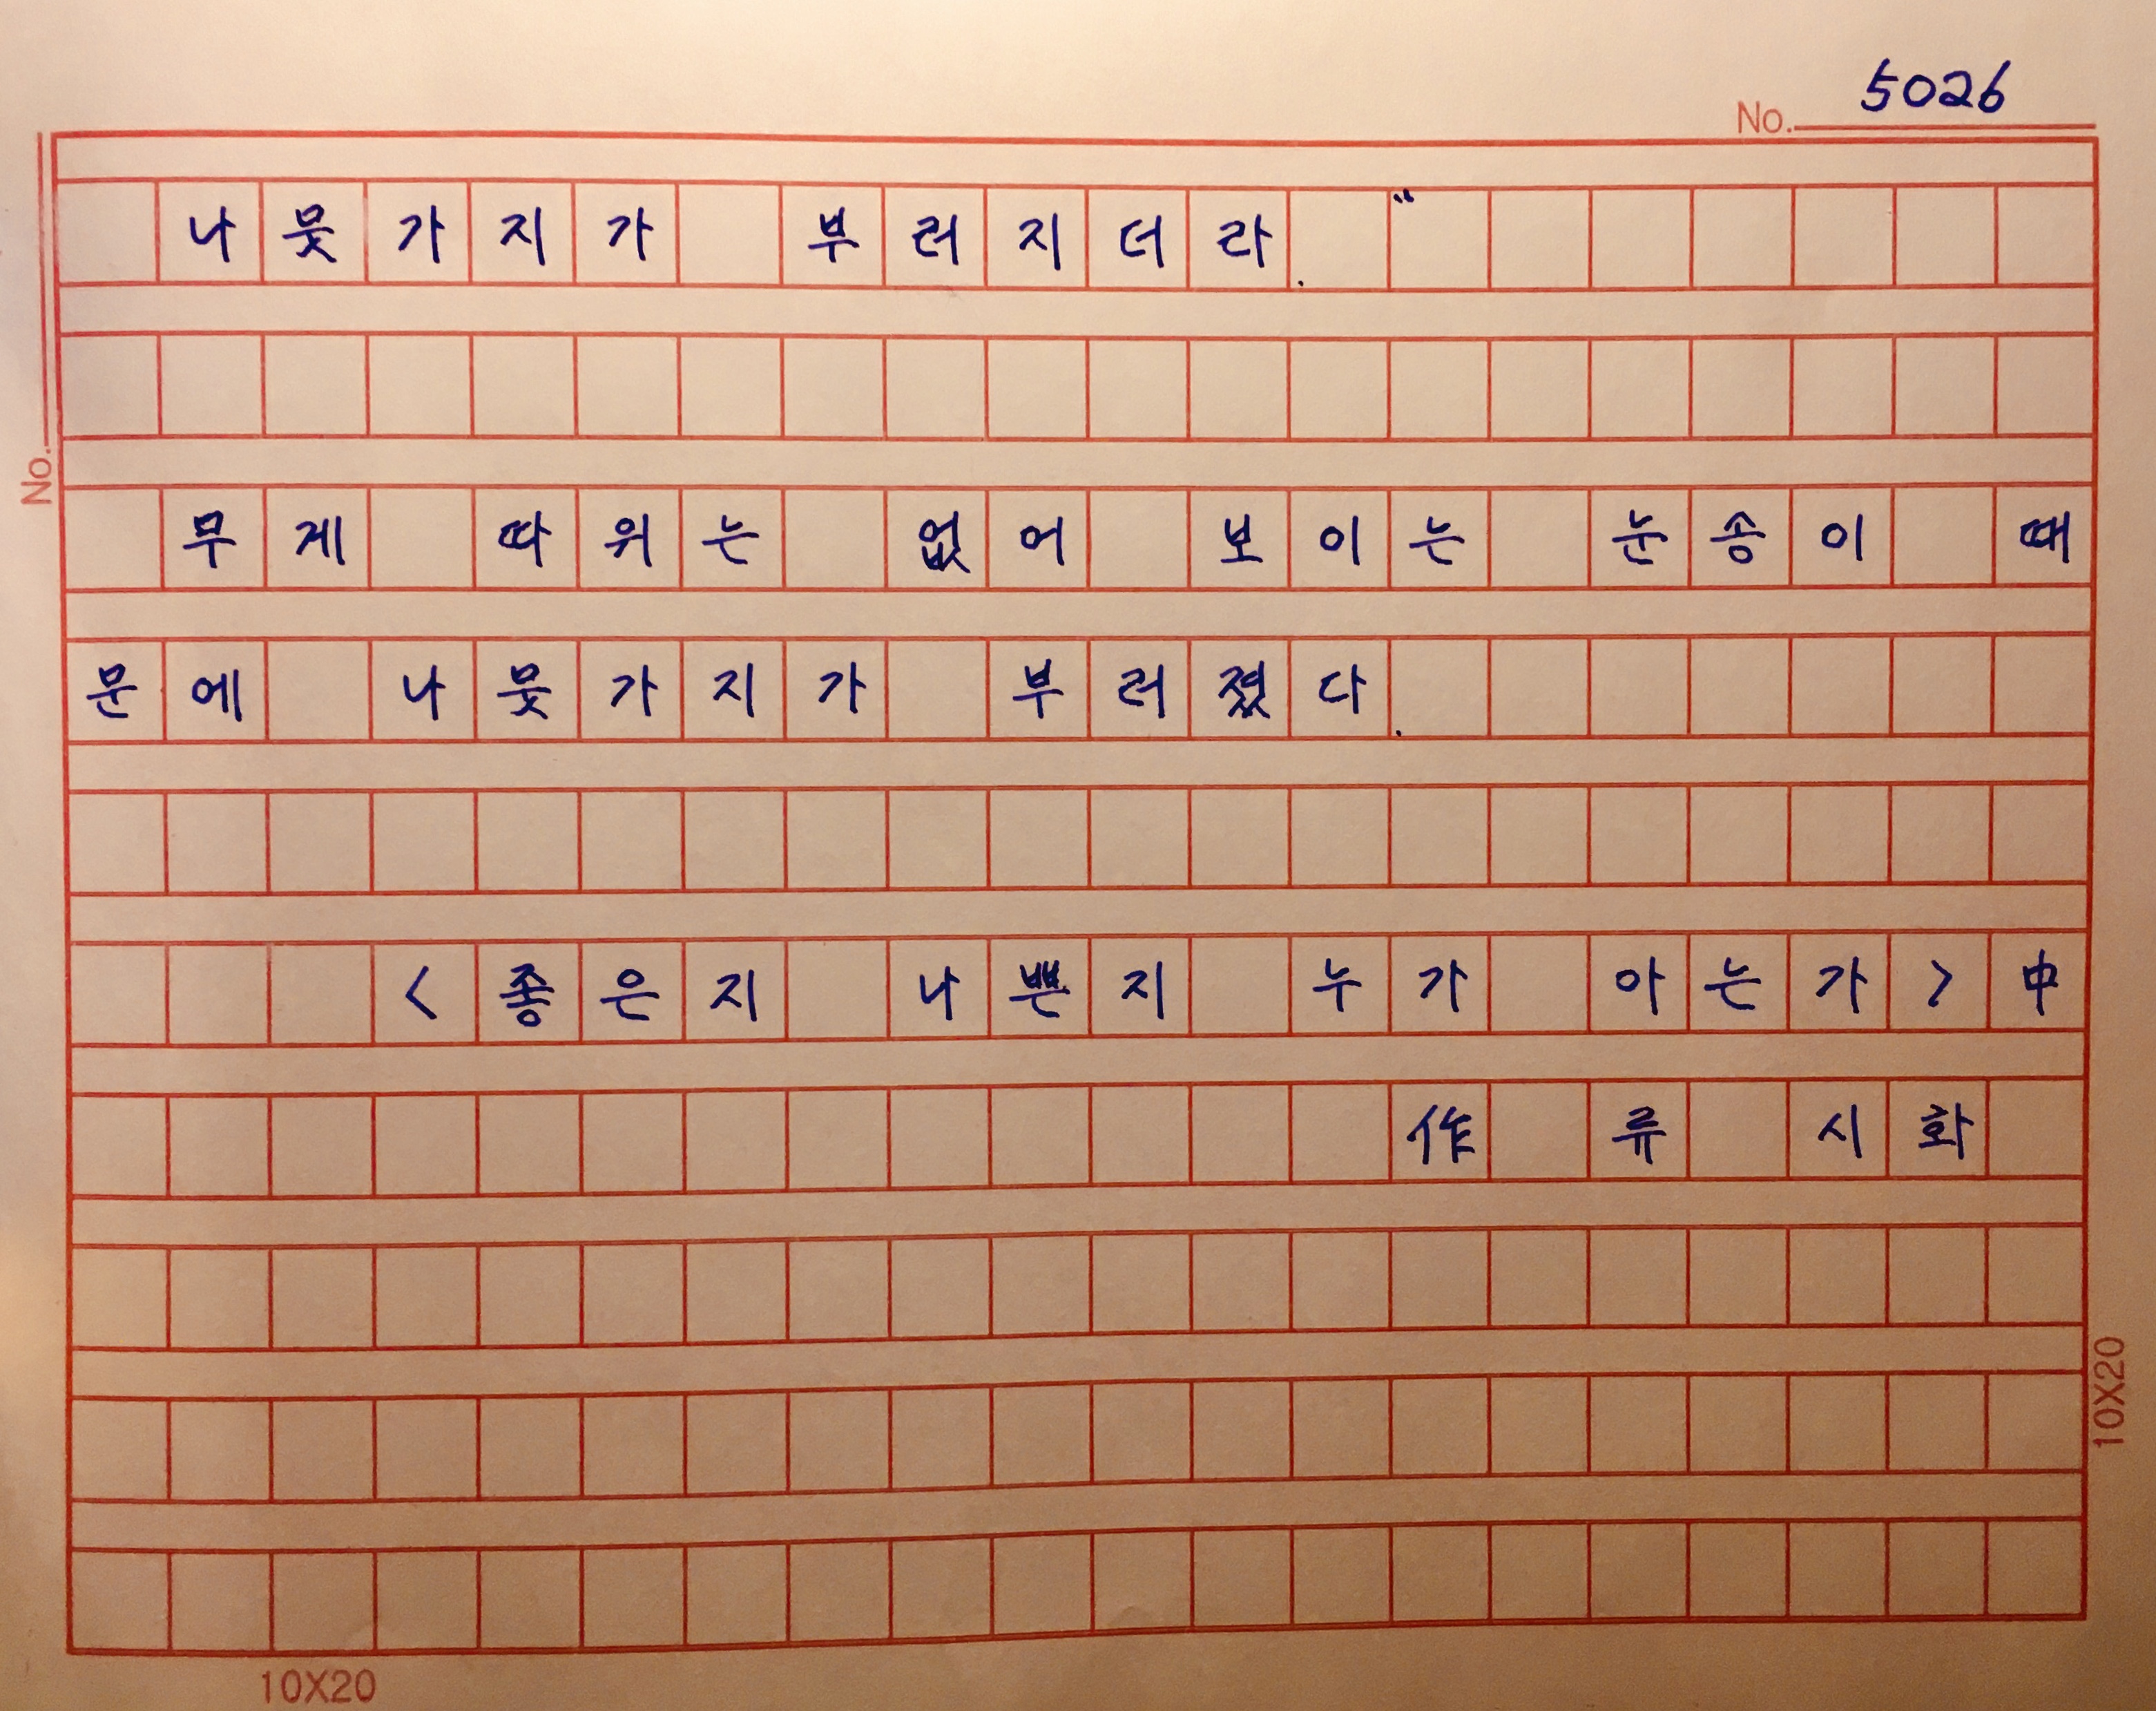 No. 5026
나뭇가지가 부러지더라."
무게 따위는 없어 보이는 눈송이 때
문에 나뭇가지가 부러졌다.
<좋은지 나쁜지 누가 아는가>中
作 류 시화
No.
10X20
10X20